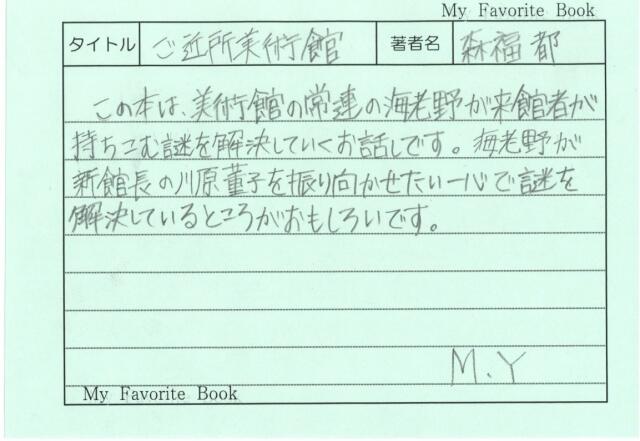 My Favorite Book
タイトル ご近所美術館 著者名 森福都
この本は、美術館の常連の海老野が来館者が
持ちこむ謎を解決していくお話しです。海老野が
新館長の川原董子を振り向かせたい一心で謎を
解決しているところがおもしろいです。
M.Y
My Favorite Book